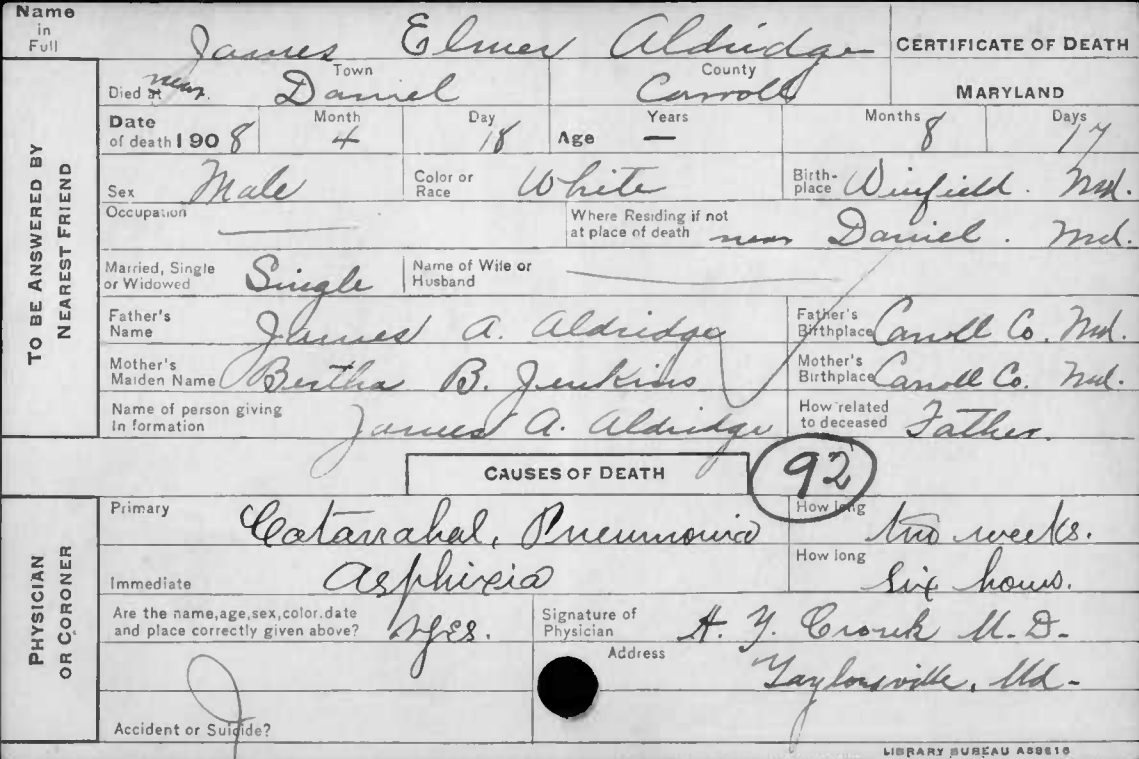 Name in Full James Elmer Aldridge CERTIFICATE OF DEATH
Died at near Town Daniel County Carroll MARYLAND
Date of death 1908 Month 4 Day 18 Age Years — Months 8 Days 17
Sex Male Color or Race White Birth-place Winfield. Md.
Occupation — Where Residing if not at place of death near Daniel. Md.
Married, Single or Widowed Single Name of Wife or Husband —
Father's Name James A. Aldridge Father's Birthplace Carroll Co. Md.
Mother's Maiden Name Bertha B. Jenkins Mother's Birthplace Carroll Co. Md.
Name of person giving In formation James A. Aldridge How related to deceased Father.
TO BE ANSWERED BY NEAREST FRIEND
CAUSES OF DEATH 92
Primary Catarrahal, Pneumonia How long two weeks.
Immediate Asphixia How long six hours.
Are the name,age,sex,color.date and place correctly given above? Yes. Signature of Physician H. Y. Cronk M.D.
Address Taylorsville, Md.
Accident or Suicide?
PHYSICIAN OR CORONER
LIBRARY BUREAU A88616